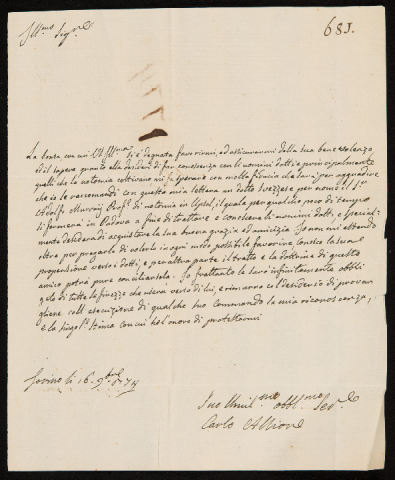 Ill.mo Sig.re
685.
La bontà con cui V.S. Ill.ma si è degnata favorirmi, ed assicurarmi della sua benevolenza
ed il sapere quanto ella desideri di far conoscenza con li uomini dotti e principalmente
quelli che la notomia coltivano mi fa sperare con molta fiducia che sarà per aggradire
che io le raccomandi con questa mia lettera un dotto Svezzese per nome il S.r
Adolfo Murray Prof.e di notomia in Upsal, il quale per qualche poco di tempo
si fermerà in Padova a fine di trattare e conoscere li uomini dotti, e special-
mente desidera di acquistare la sua buona grazia ed amicizia. Io non mi estendo
oltre per pregarla di volerlo in ogni modo possibile favorire. Conosco la sua
propensione verso i dotti, e per altra parte il tratto e la dottrina di questo
amico potrà pure conciliarsela. Io frattanto le sarò infinitamente obbli
gato di tutte le finezze che userà verso di lui, e rimarrò col desiderio di provar
gliene coll'esecuzione di qualche suo commando la mia riconoscenza,
e la singol.e stima con cui ho l'onore di protestarmi
Torino li 16. 9bre 1774
Suo Umil.mo obbl.mo Ser.e
Carlo Allioni